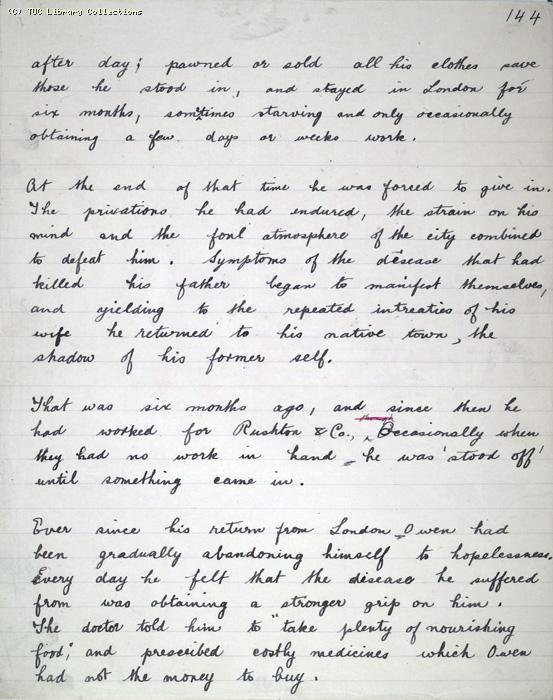 (C) TUC Library Collections
144
after day; pawned or sold all his clothes save
those he stood in, and stayed in London for
six months, sometimes starving and only occasionally
obtaining a few days or weeks work.
At the end of that time he was forced to give in.
The privations he had endured, the strain on his
mind and the foul atmosphere of the city combined
to defeat him. Symptoms of the disease that had
killed his father began to manifest themselves,
and yielding to the repeated intreaties of his
wife he returned to his native town, the
shadow of his former self.
That was six months ago, and since then he
though
had worked for Rushton & Co., Occasionally when
they had no work in hand he was 'stood off'
until something came in.
Ever since his return from London Owen had
been gradually abandoning himself to hopelessness.
Every day he felt that the disease he suffered
from was obtaining a stronger grip on him.
The doctor told him to "take plenty of nourishing
food," and prescribed costly medicines which Owen
had not the money to buy.